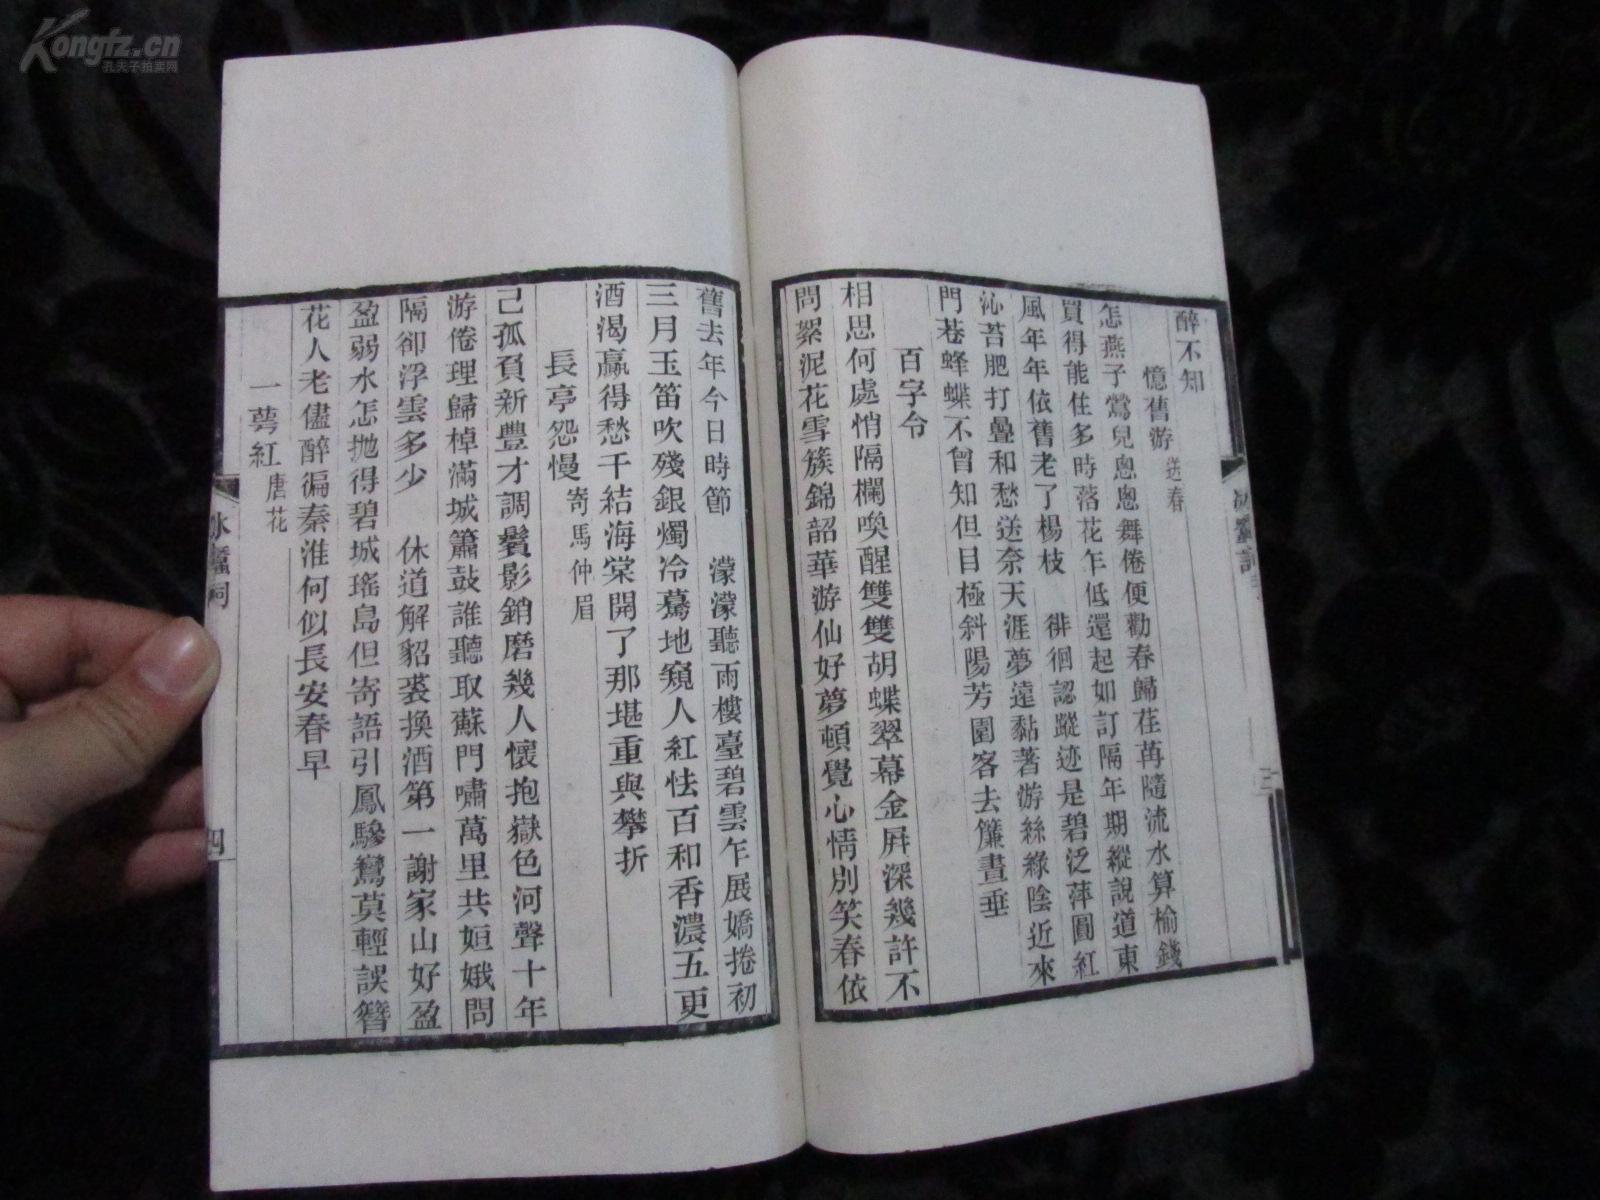 Kongfz.cn
孔夫子拍卖网
醉不知
憶舊游 送春
怎燕子鶯兒悤悤舞倦便勸春歸荏苒隨流水算榆錢
買得能住多時落花乍低還起如訂隔年期縱說道東
風年年依舊老了楊枝 徘徊認蹤迹是碧泛萍圓紅
沁苔肥打疊和愁送奈天涯夢遠黏著游絲綠陰近來
門巷蜂蝶不曾知但目極斜陽芳園客去簾晝垂
百字令
相思何處悄隔欄喚醒雙雙胡蝶翠幕金屏深幾許不
問絮泥花雪簇錦韶華游仙好夢頓覺心情別笑春依
三
舊去年今日時節 濛濛聽雨樓臺碧雲乍展嬌捲初
三月玉笛吹殘銀燭冷驀地窺人紅怯百和香濃五更
酒渴贏得愁千結海棠開了那堪重與攀折
長亭怨慢 寄馬仲眉
己孤負新豐才調鬢影銷磨幾人懷抱嶽色河聲十年
游倦理歸棹滿城簫鼓誰聽取蘇門嘯萬里共姮娥問
隔卻浮雲多少 休道解貂裘換酒第一謝家山好盈
盈弱水怎拋得碧城瑤島但寄語引鳳驂鸞莫輕誤簪
花人老儘醉徧秦淮何似長安春早
一萼紅 唐花
冰蠶詞
四